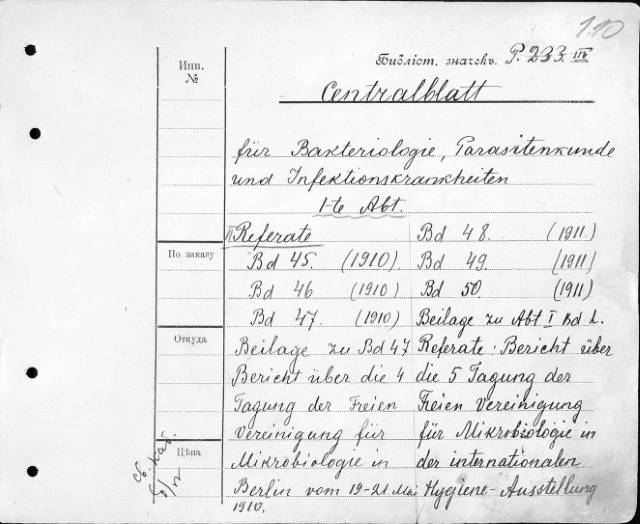 110
Библіот. значекъ. P. 233. III b
Инв. №
Centralblatt
für Bakteriologie, Parasitenkunde
und Infektionskrankheiten
1-te Abt.
Referate
Bd 45. (1910)
Bd 46 (1910)
Bd 47. (1910)
Beilage zu Bd 47
Bericht über die 4
Tagung der Freien
Vereinigung für
Mikrobiologie in
Berlin vom 19-21 Mai
1910.
Bd 48. (1911.)
Bd 49. (1911)
Bd 50. (1911)
Beilage zu Abt I Bd L.
Referate: Bericht über
die 5 Tagung der
Freien Vereinigung
für Mikrobiologie in
der internationalen
Hygiene-Ausstellung
По заказу
Откуда
Цѣна